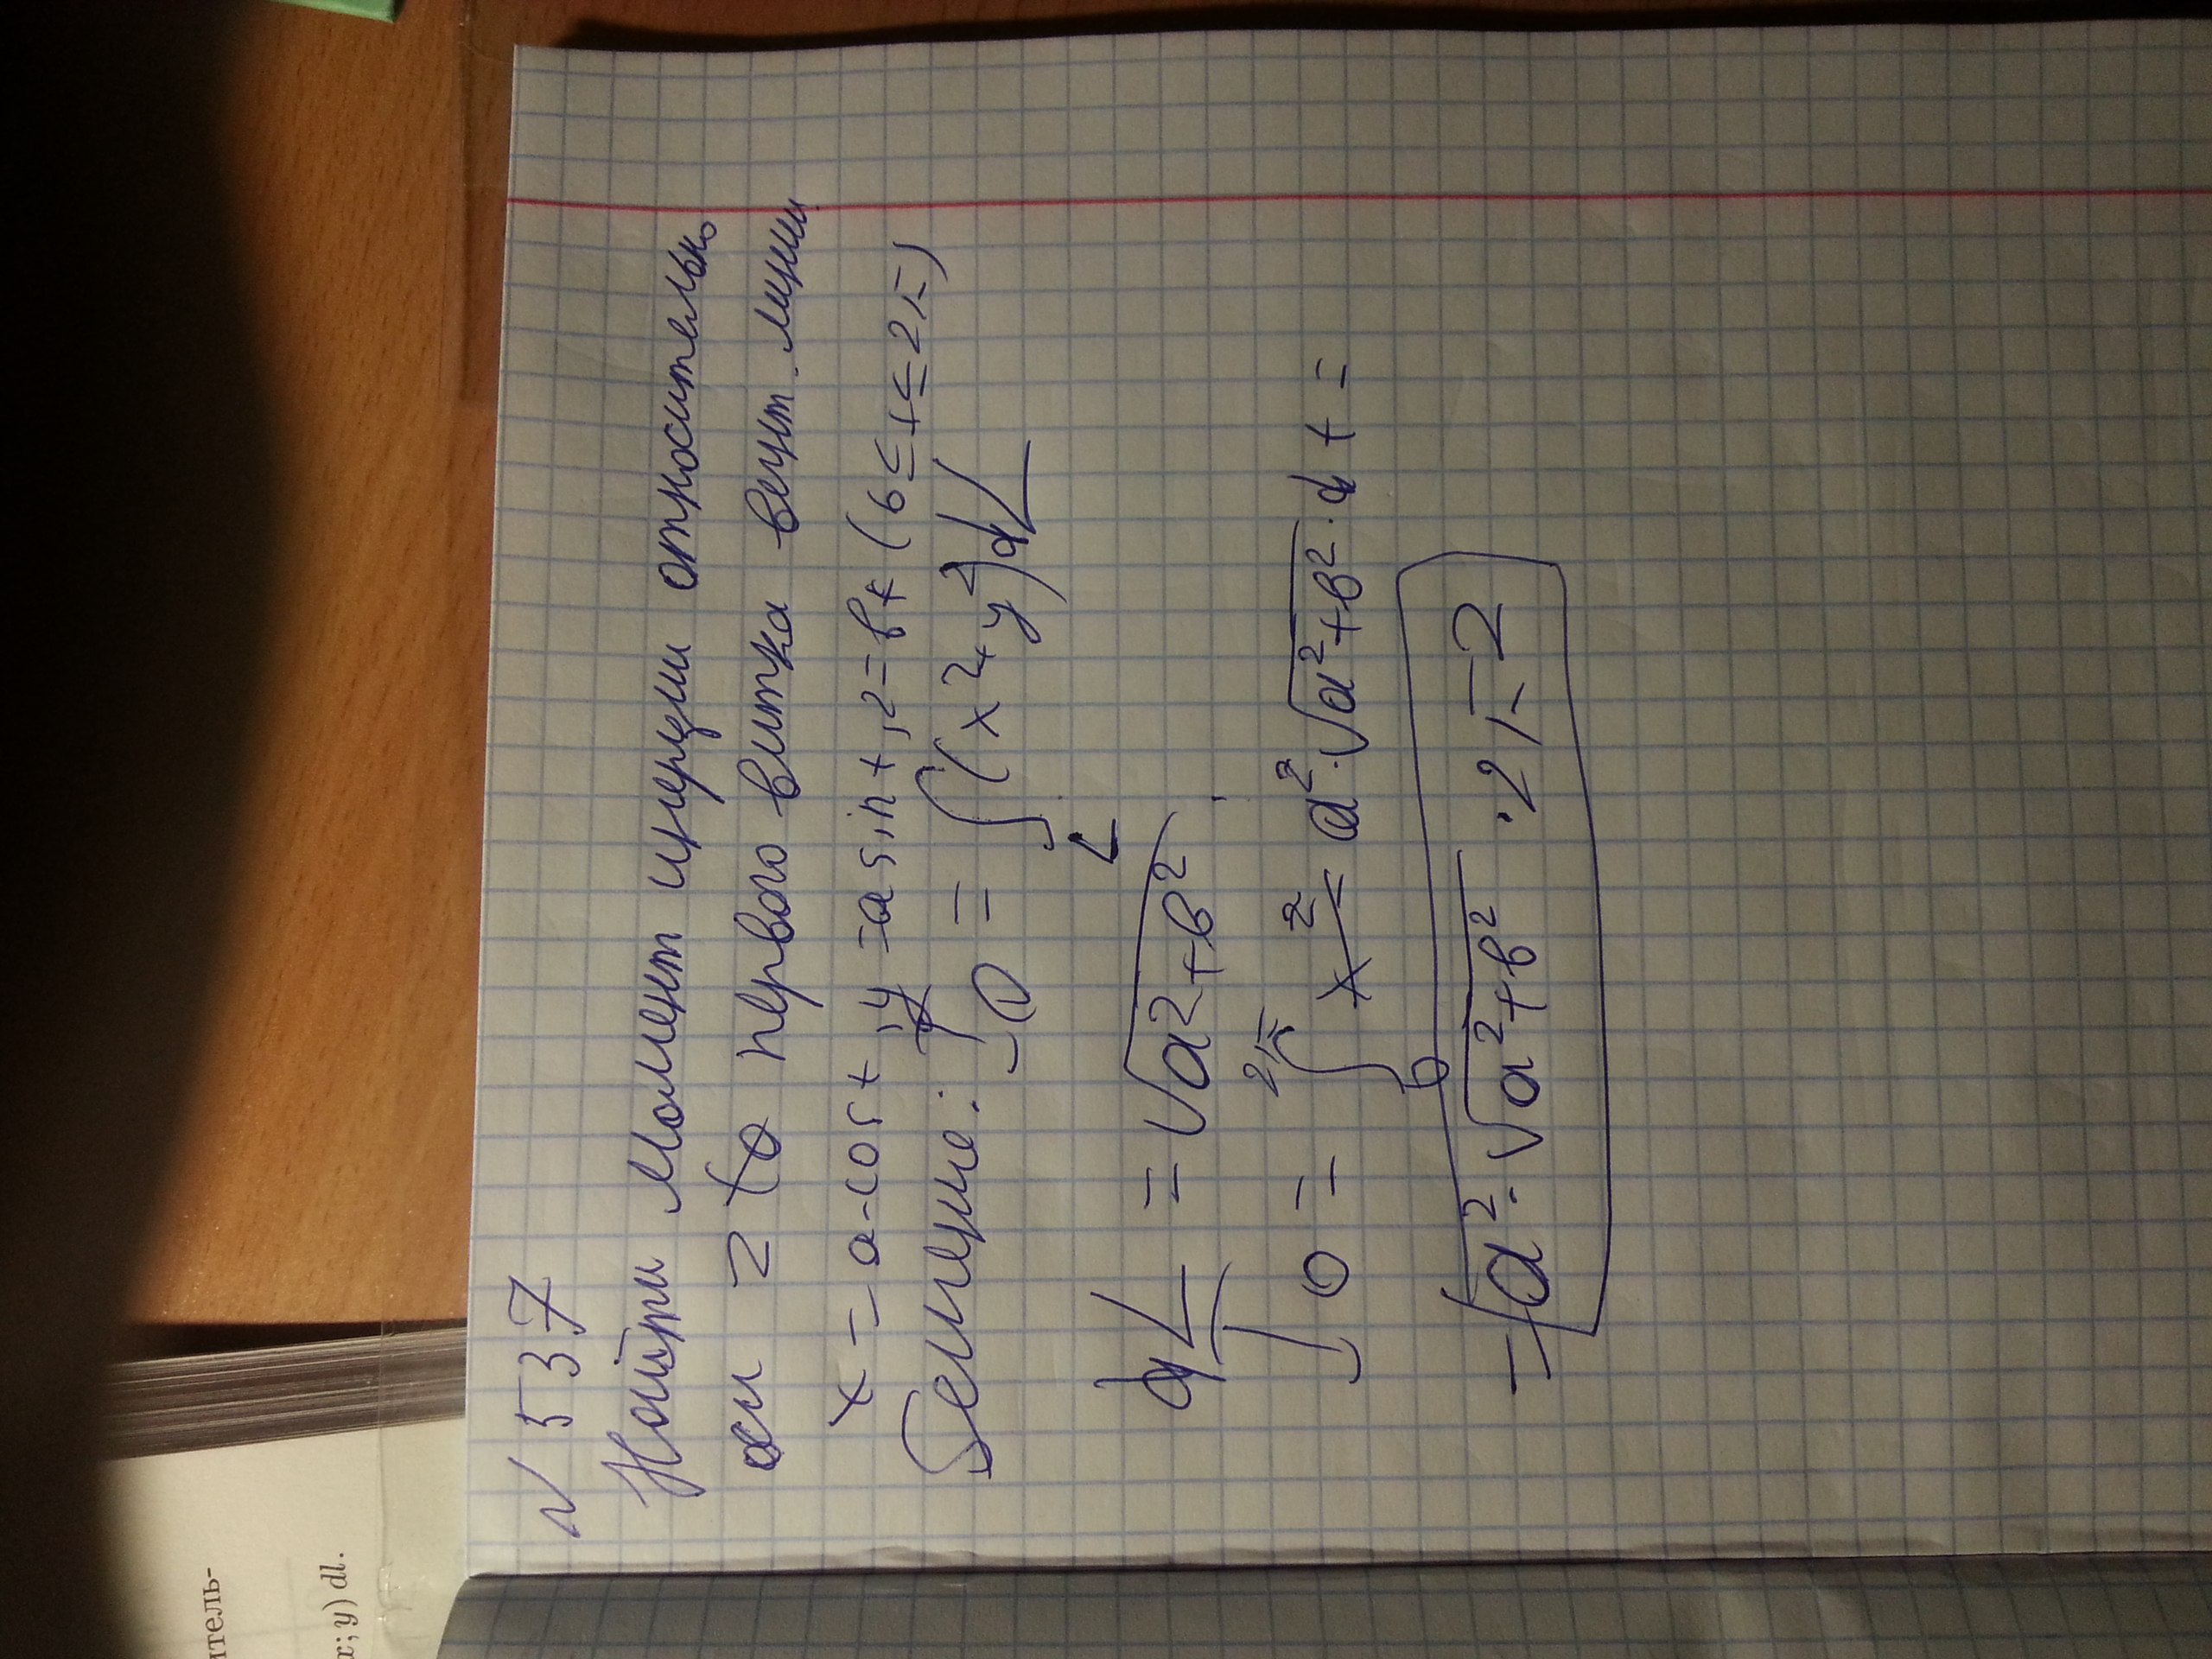 N 537
Найти момент инерции относительно
оси z Jo первого витка винт. линии
x = a cos t, y = a sin t, z = bt (0 ≤ t ≤ 2π)
Решение: Jo = ∫L (x² + y²) dL
dL = √a²+b²
Jo = ∫₀^2π a² · √a²+b² · dt =
= a² · √a²+b² · 2π
итель-
x; y) dl.